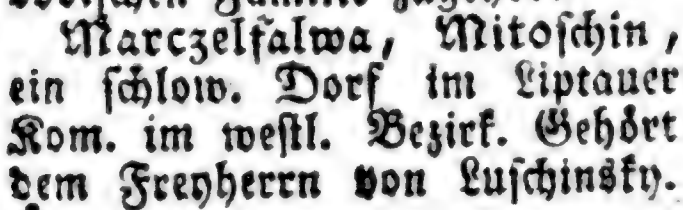 Marczelfalwa, Mitoſchin,
ein ſchlow. Dorf im Liptauer
Kom. im weſtl. Bezirk. Gehört
dem Freyherrn von Luſchinsky.